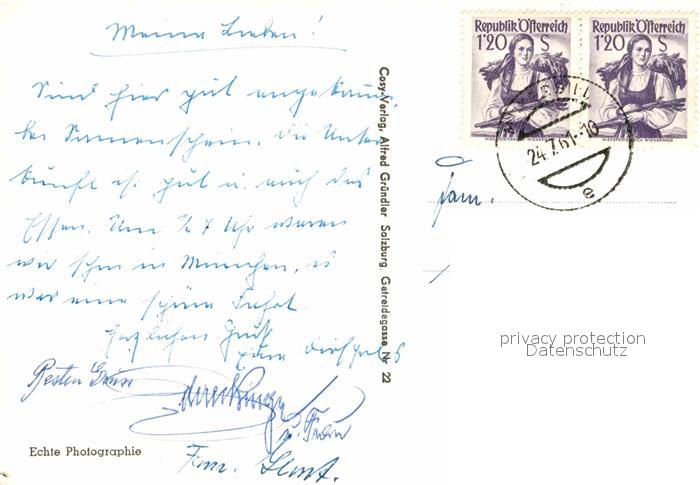 Meine Lieben!
Sind hier gut angekommen
bei Sonnenschein. Die Unter
kunft ist gut u. auch das
Essen. Um ½ 7 Uhr waren
wir schon in München, es
war eine schöne Fahrt.
Herzlichen Gruß
Besten Gruss
u. Frau
Fam.
Echte Photographie
Cosy-Verlag, Alfred Gründler Salzburg, Getreidegasse Nr 22
Republik Österreich
1'20 S
Republik Österreich
1'20 S
24.7.61-18
e
Fam.
privacy protection
Datenschutz